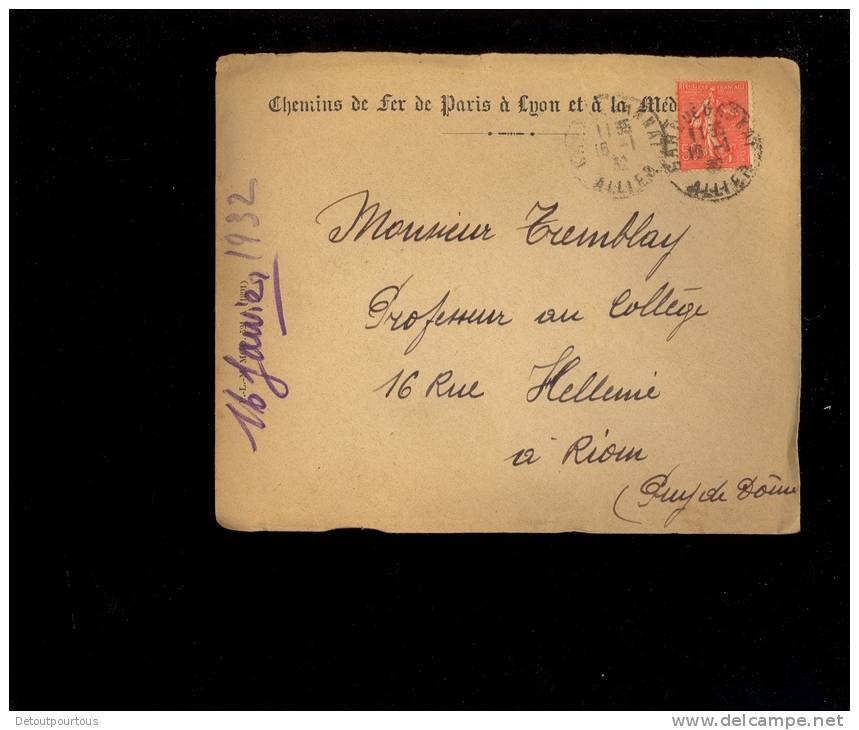 Chemins de Fer de Paris à Lyon et à la Méd
RÉPUBLIQUE FRANÇAISE
11
16 -1
32
ALLIER
GARE DE GANNAT
11
16
ALLIER
16 Janvier 1932
Monsieur Tremblay
Professeur au Collège
16 Rue Hellenie
à Riom
(Puy de Dôme
Detoutpourtous
www.delcampe.net